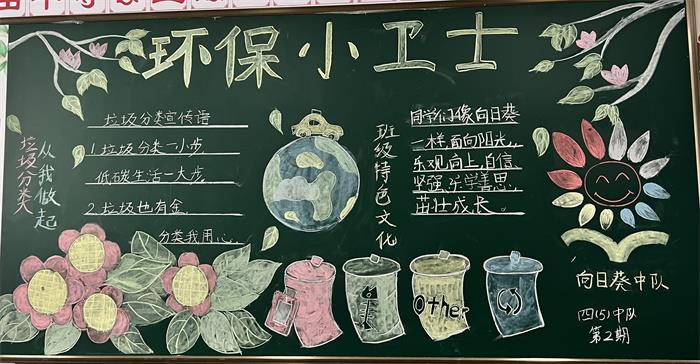 环保小卫士
垃圾分类
从我做起
垃圾分类宣传语
1.垃圾分类一小步
低碳生活一大步
2.垃圾也有金,
分类我用心.
班级特色文化
同学们像向日葵
一样面向阳光,
乐观向上,自信
坚强,乐学善思,
茁壮成长。
Other
向日葵中队
四(5)中队
第2期